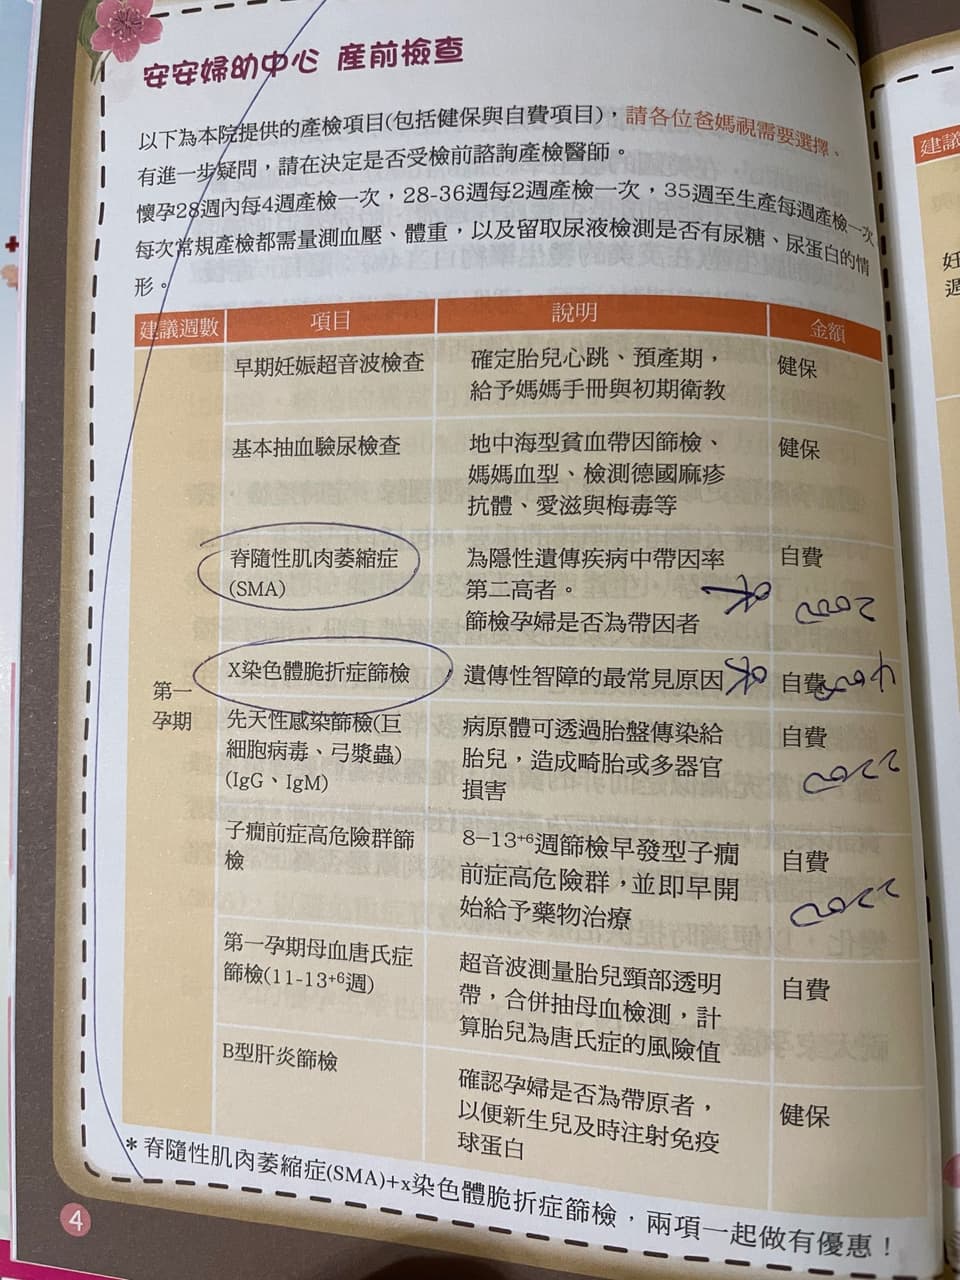 安安婦幼中心 產前檢查
以下為本院提供的產檢項目(包括健保與自費項目)，請各位爸媽視需要選擇、
有進一步疑問，請在決定是否受檢前諮詢產檢醫師。
懷孕28週內每4週產檢一次，28-36週每2週產檢一次，35週至生產每週產檢一次
每次常規產檢都需量測血壓、體重，以及留取尿液檢測是否有尿糖、尿蛋白的情
形。
建議週數 項目 說明 金額
第一
孕期
早期妊娠超音波檢查
確定胎兒心跳、預產期，
給予媽媽手冊與初期衛教
健保
基本抽血驗尿檢查
地中海型貧血帶因篩檢、
媽媽血型、檢測德國麻疹
抗體、愛滋與梅毒等
健保
脊隨性肌肉萎縮症
(SMA)
為隱性遺傳疾病中帶因率
第二高者。
篩檢孕婦是否為帶因者
ok
自費
2000
X染色體脆折症篩檢
遺傳性智障的最常見原因
ok
自費
4000
先天性感染篩檢(巨
細胞病毒、弓漿蟲)
(IgG、IgM)
病原體可透過胎盤傳染給
胎兒，造成畸胎或多器官
損害
自費
2200
子癇前症高危險群篩
檢
8–13+6週篩檢早發型子癇
前症高危險群，並即早開
始給予藥物治療
自費
2200
第一孕期母血唐氏症
篩檢(11-13+6週)
超音波測量胎兒頸部透明
帶，合併抽母血檢測，計
算胎兒為唐氏症的風險值
自費
B型肝炎篩檢
確認孕婦是否為帶原者，
以便新生兒及時注射免疫
球蛋白
健保
*脊隨性肌肉萎縮症(SMA)+x染色體脆折症篩檢，兩項一起做有優惠！
4
建議
妊